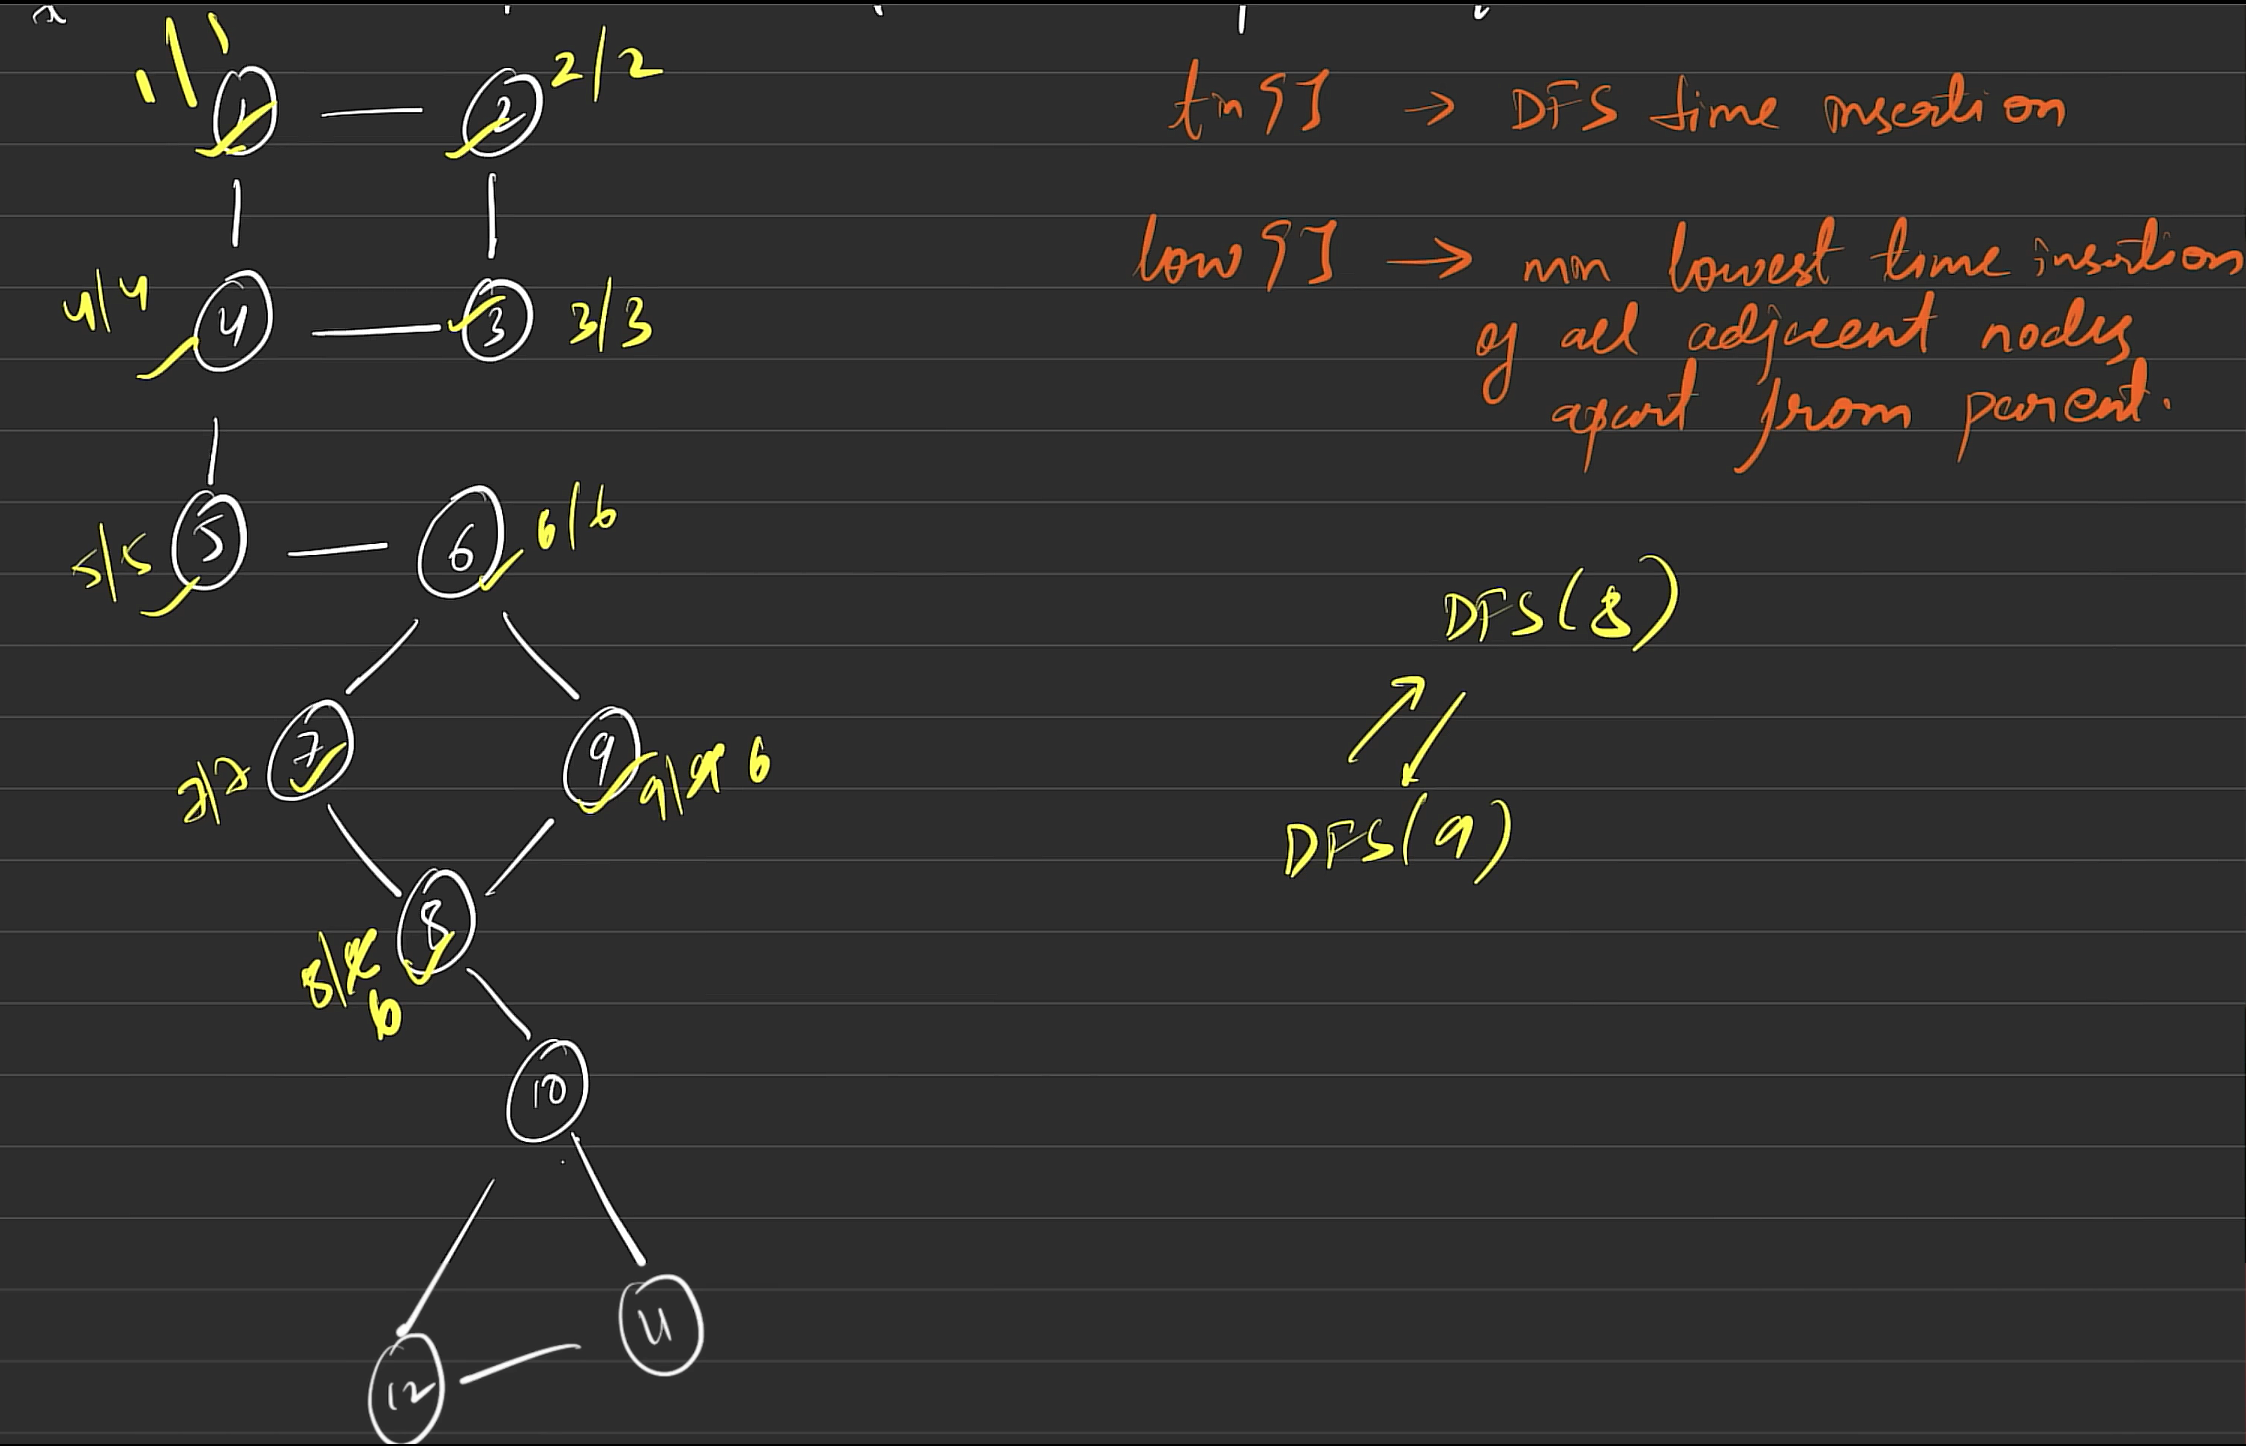 1/1
1
2
2/2
4/4
4
3
3/3
5/5
5
6
6/6
7/7
7
9
9/9 6
8
8/8
6
10
11
12
tin [] → DFS time insertion
low [] → min lowest time insertion
of all adjacent nodes
apart from parent.
DFS(8)
DFS(9)